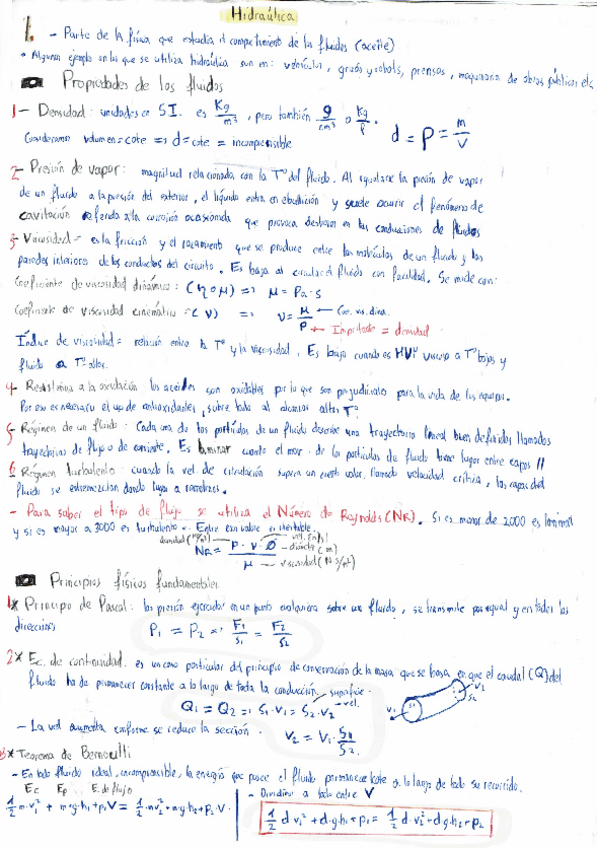 Hidraúlica
1. - Parte de la física que estudia el comportamiento de los fluidos (aceite)
• Algunos ejemplo en los que se utiliza hidraúlica son en: vehículos, gruas y robots, prensas, maquinaria de obras públicas etc
Propiedades de los fluidos
1- Densidad: unidades en S.I. es Kg/m³, pero también g/cm³ o Kg/l.
Consideramos volumen=cte => d=cte = incompresible d = ρ = m/V
2- Presión de vapor: magnitud relacionada con la Tº del fluido. Al igualarse la presión de vapor
de un fluido a la presión del exterior, el líquido entra en ebullición y suele ocurrir el fenómeno de
cavitación referida a la corrosión ocasionada que provoca desgaste en las conducciones de fluidos
3- Viscosidad - es la fricción y el rozamiento que se produce entre las moléculas de un fluido y las
paredes interiores de los conductos del circuito. Es baja al circular el fluido con facilidad. Se mide con:
Coeficiente de viscosidad dinámica: (η o μ) => μ = Pa·s
Coeficiente de viscosidad cinemática =(ν) => ν = μ/ρ ← Coe. vis. dina.
← Importante = densidad
Índice de viscosidad = relación entre la Tº y la viscosidad. Es bajo cuando es MUY viscoso a Tº bajas y
fluido a Tº altas.
4- Resistencia a la oxidación los aceites son oxidables por lo que son perjudiciales para la vida de los equipos.
Por eso es necesario el uso de antioxidantes, sobre todo al alcanzar altas Tº.
5- Régimen de un fluido: Cada una de las partículas de un fluido describe una trayectoria lineal bien definidas llamadas
trayectorias de flujo o de corriente. Es laminar cuando el mov. de las partículas de fluido tiene lugar entre capas //
6 Régimen turbulento: cuando la vel. de circulación supera un cierto valor, llamado velocidad crítica, las capas del
fluido se entremezclan dando lugar a
- Para saber el tipo de flujo se utiliza el Número de Raynolds (NR). Si es menor de 2000 es laminal
y si es mayor a 3000 es turbulento. Entre esos valores es inestable.
densidad (kg/m³) vel. (m/s)
NR = ρ · v · Ø / μ diámetro (m)
viscosidad (N·s/m²)
Principios físicos fundamentales
1* Principio de Pascal: las presión ejercidas en un punto cualquiera sobre un fluido, se transmite por igual y en todas las
direcciones P₁ = P₂ =: F₁/S₁ = F₂/S₂
2* Ec. de continuidad. es un caso particular del principio de conservación de la masa que se basa en que el caudal (Q) del
fluido ha de permanecer constante a lo largo de toda la conducción. superficie.
Q₁ = Q₂ =: S₁·V₁ = S₂·V₂ -vel. V₁ S₁ V₂ S₂
- La vel aumenta conforme se reduce la sección. V₂ = V₁ · S₁/S₂
3* Teorema de Bernoulli
- En todo fluido ideal, incompresible, la energía que posee el fluido permanece cte a lo largo de todo su recorrido.
Ec Ep E. de flujo - Dividimos a todo entre V
½·m·v₁² + m·g·h₁+p₁V = ½·m·v₂²+m·g·h₂+p₂·V· ½ d v₁² + d·g·h₁+p₁ = ½ d·v₂²+d·g·h₂+p₂